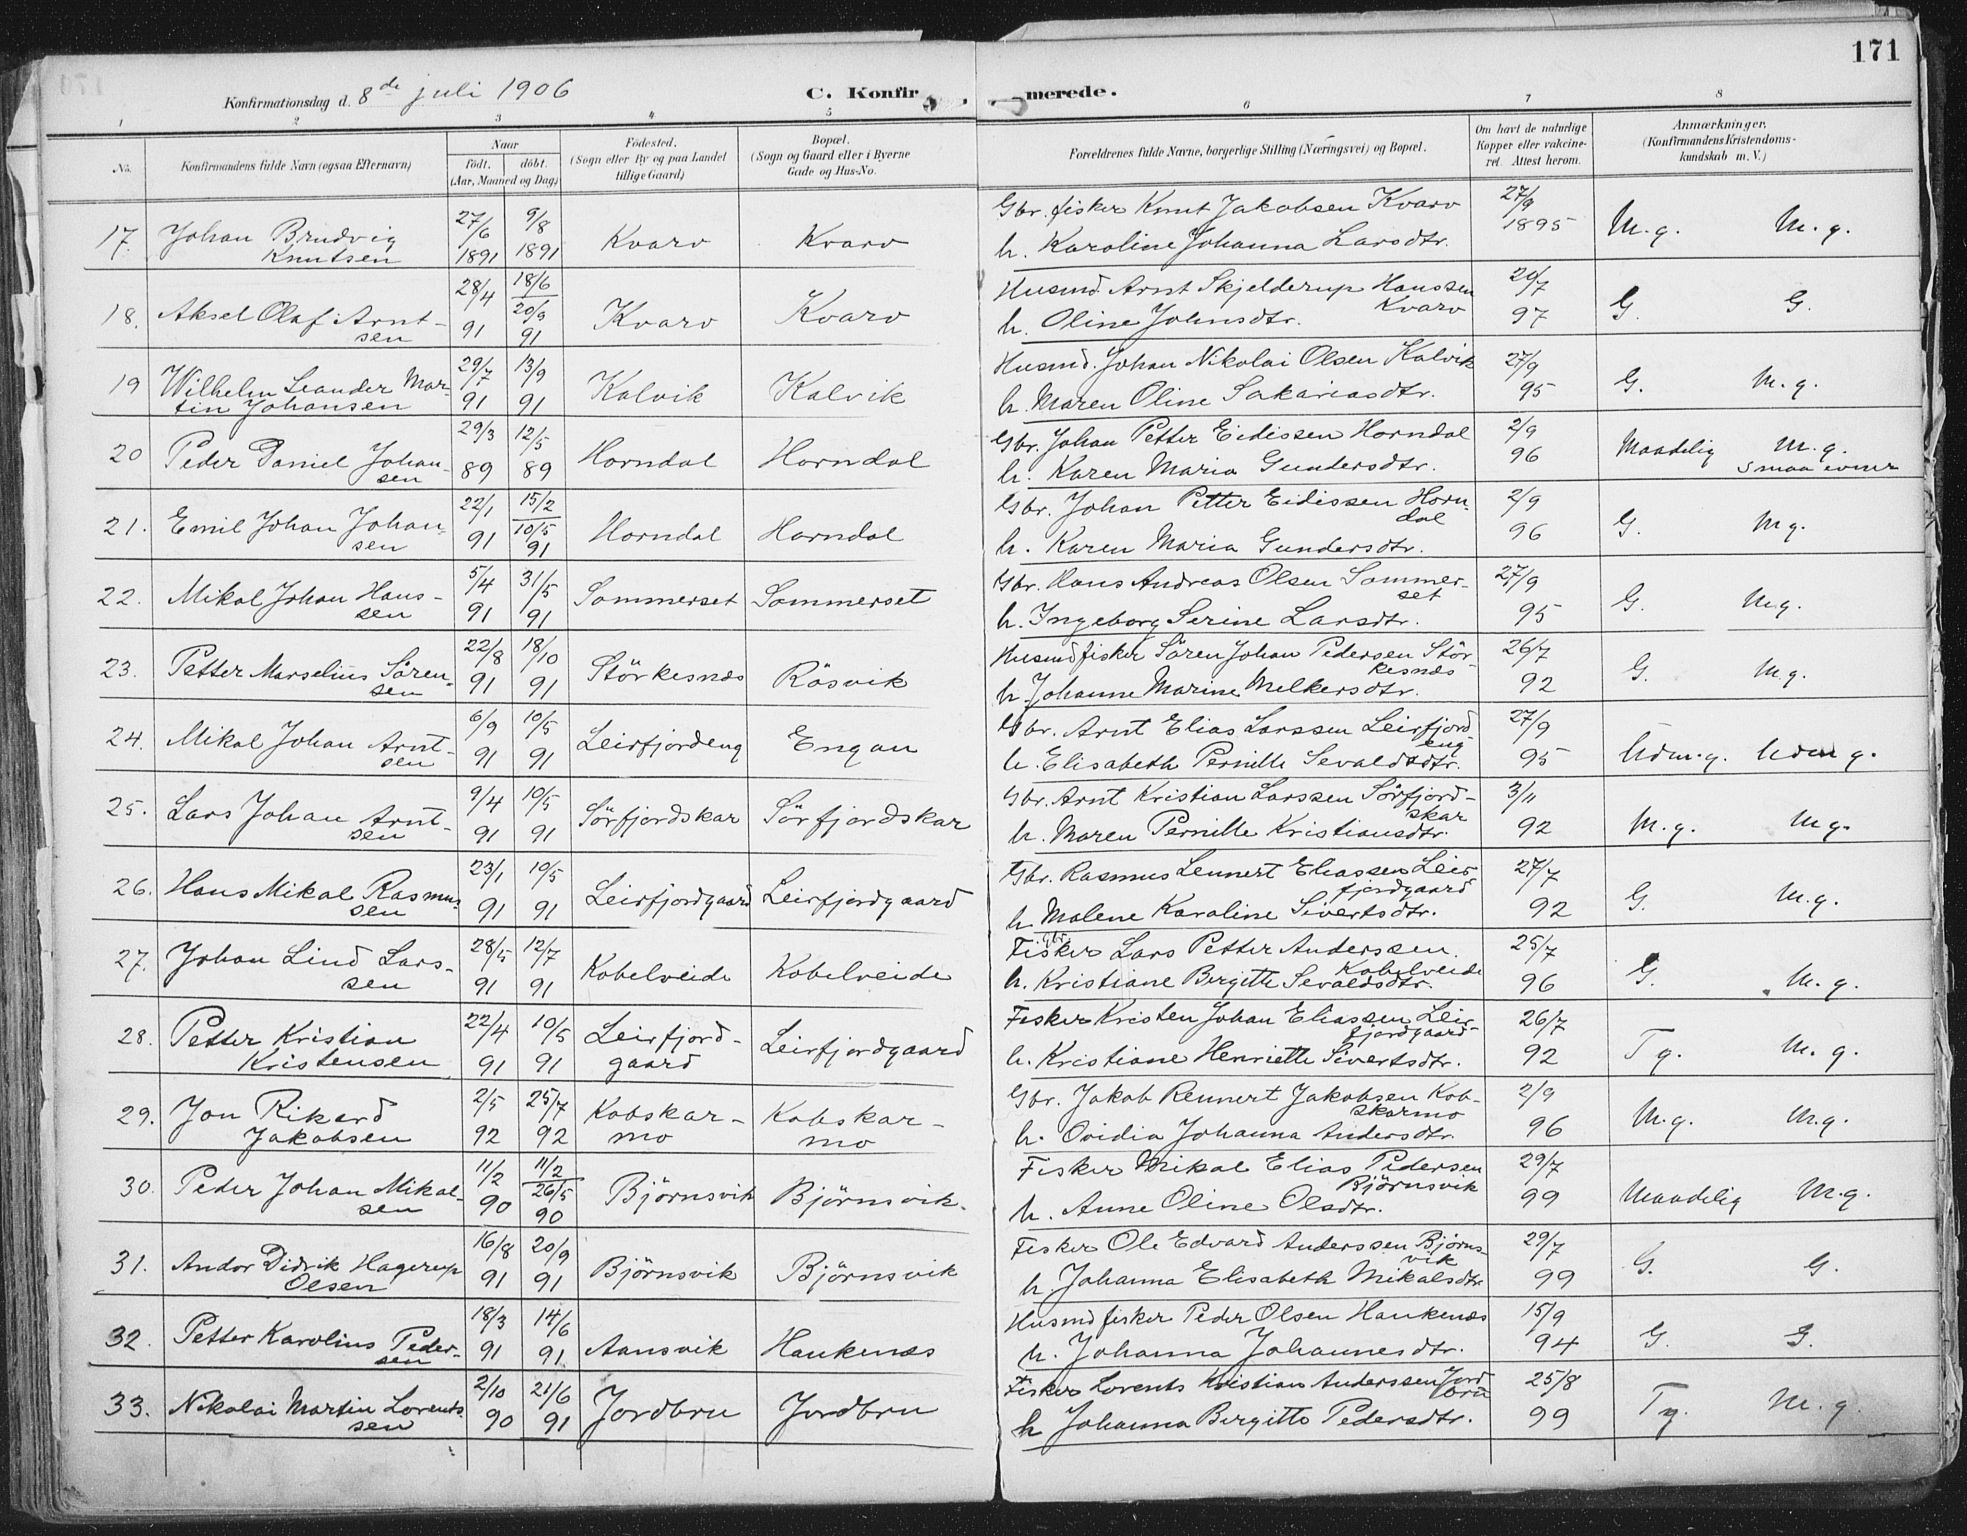 171
Konfirmationsdag d. 8de juli 1906
C. Konfir
merede.
1 2 3 4 5 6 7 8
No.
Konfirmandens fulde Navn (ogsaa Efternavn)
Naar
født. døbt.
(Aar, Maaned og Dag)
Fødested.
(Sogn eller By og paa Landet
tillige Gaard)
Bopæl.
(Sogn og Gaard eller i Byerne
Gade og Hus-No.
Forældrenes fulde Navne, borgerlige Stilling (Næringsvei) og Bopæl.
Om havt de naturlige
Kopper eller vakcine-
ret. Attest herom.
Anmærkninger.
(Konfirmandens Kristendoms-
kundskab m. V.)
17. Johan Brudvig Knutsen 27/6 1891 9/8 1891 Kvarv Kvarv
Gbr. fisker Knut Jakobsen Kvarv 27/9 1895 M.g. M.g.
h. Karoline Johanna Larsdtr.
18. Aksel Olaf Arntsen 28/4 91 18/6 20/9 91 Kvarv Kvarv
Husmd. Arnt Skjelderup Hanssen Kvarv 20/7 97 G. G.
h. Oline Johnsdtr.
19 Wilhelm Leander Martin Johansen 29/7 91 13/9 91 Kalvik Kalvik
Husmd. Johan Nikolai Olsen Kalvik 27/9 95 G. M.g.
h. Maren Oline Sakariasdtr.
20 Peder Daniel Johansen 29/3 89 12/5 89 Horndal Horndal
Gbr. Johan Petter Eidissen Horndal 2/9 96 Maadelig M.g. smaa evner
h. Karen Maria Gundersdtr.
21. Emil Johan Johansen 22/1 91 15/2 10/5 91 Horndal Horndal
Gbr. Johan Petter Eidissen Horndal 2/9 96 G. Mg.
h. Karen Maria Gundersdtr.
22. Mikal Johan Hanssen 5/4 91 31/5 91 Sommerset Sommerset
Gbr. Hans Andreas Olsen Sommerset 27/9 95 G. M.g.
h. Ingeborg Serine Larsdtr.
23. Petter Marselius Sörensen 22/8 91 18/10 91 Störkesnæs Rösvik
Husmd fisker Sören Johan Pedersen Störkesnæs 26/7 92 G. M.g.
h. Johanne Marine Melkersdtr.
24. Mikal Johan Arntsen 6/9 91 10/5 91 Leirfjordeng Engan
Gbr. Arnt Elias Larssen Leirfjordeng 27/9 95 Udm.g. Udm g.
h. Elisabeth Pernille Sevaldsdtr.
25. Lars Johan Arntsen 9/4 91 10/5 91 Sörfjordskar Sörfjordskar
Gbr. Arnt Kristian Larssen Sörfjordskar 3/11 92 M.g. Mg.
h. Maren Pernille Kristiansdtr.
26. Hans Mikal Rasmussen 23/1 91 10/5 91 Leirfjordgaard Leirfjordgaard
Gbr. Rasmus Lennert Eliassen Leirfjordgaard 27/7 92 G. M.g.
h. Malene Karoline Sivertsdtr.
27. Johan Lind Larssen 28/5 91 12/7 91 Kobelveide Kobelveide
Fisker Gbr. Lars Petter Anderssen. Kobelveide 25/7 96 G. M.g.
h. Kristiane Bergitte Sevaldsdtr.
28. Petter Kristian Kristensen 22/4 91 10/5 91 Leirfjordgaard Leirfjordgaard
Fisker Kristen Johan Eliassen Leirfjordgaard 26/7 92 Tg. M.g.
h. Kristiane Henriette Sivertsdtr.
29. Jon Rikard Jakobsen 2/5 92 25/7 92 Kobskarmo Kobskarmo
Gbr. Jakob Rennert Jakobsen Kobskarmo 2/9 96 M.g. M.g.
h. Ovidia Johanna Andersdtr.
30. Peder Johan Mikalsen 11/2 90 11/2 26/5 90 Björnsvik Björnsvik.
Fisker Mikal Elias Pedersen Björnsvik 29/7 99 Maadelig M.g.
h. Anne Oline Olsdtr.
31. Andor Didrik Hagerup Olsen 16/8 91 20/9 91 Björnsvik Björnsvik
Fisker Ole Edvard Anderssen Björnsvik 29/7 99 G. G.
h. Johanna Elisabeth Mikalsdtr
32. Petter Karolius Pedersen 18/3 91 14/6 91 Aansvik Haukenæs
Husmd fisker Peder Olsen Haukenæs 15/9 94 G. G.
h. Johanna Johannesdtr.
33. Nikolai Martin Lorentssen 2/10 90 21/6 91 Jordbru Jordbru
Fisker Lorents Kristian Anderssen Jordbru 25/8 99 Tg. M.g.
h Johanna Bergitte Pedersdtr.